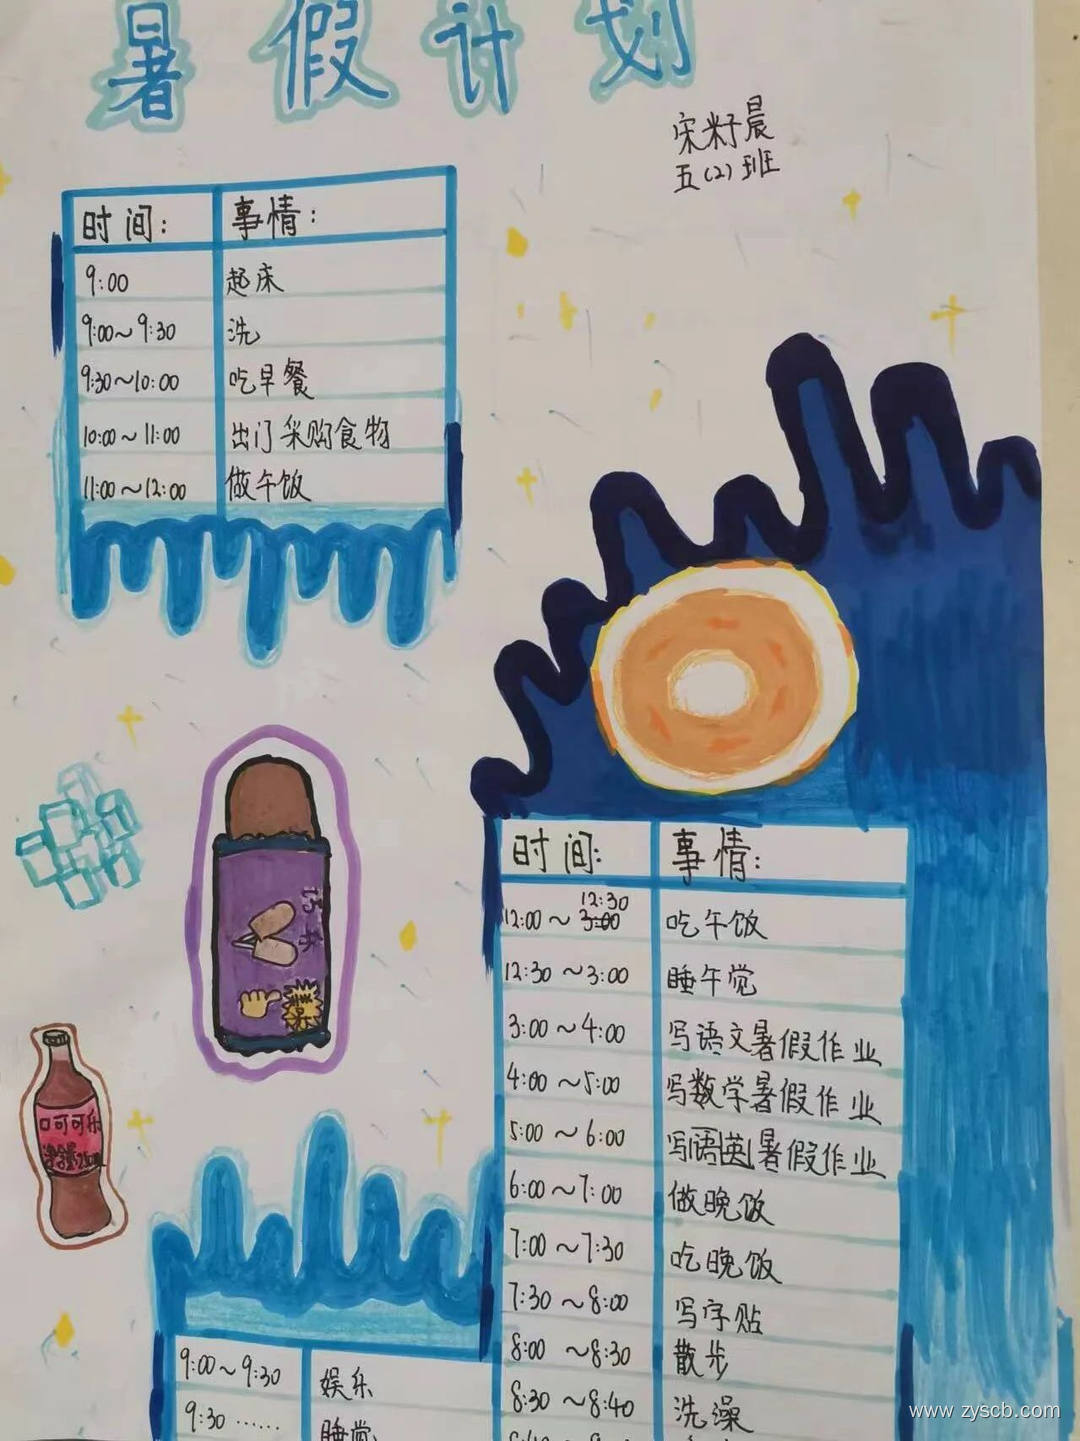 暑假计划
宋籽晨
五(2)班
时间: 事情:
9:00 起床
9:00~9:30 洗
9:30~10:00 吃早餐
10:00~11:00 出门采购食物
11:00~12:00 做午饭
时间: 事情:
12:30
12:00~3:00 吃午饭
12:30~3:00 睡午觉
3:00~4:00 写语文暑假作业
4:00~5:00 写数学暑假作业
5:00~6:00 写语英暑假作业
6:00~7:00 做晚饭
7:00~7:30 吃晚饭
7:30~8:00 写字贴
8:00~8:30 散步
8:30~8:40 洗澡
口可可乐
净含量
9:00~9:30 娱乐
9:30…… 睡觉
www.zyscb.com